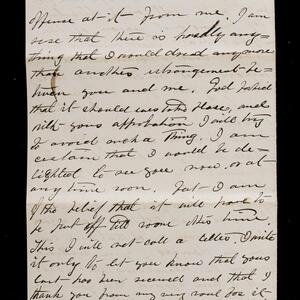 offense at it from me. I am
sure that there is hardly any-
thing that I would dread any more
than another estrangement be-
tween you and me. God forbid
that it should ever take place, and
with your approbation I will try
to avoid such a thing. I am
certain that I would be de-
lighted to see you now, or at
any time soon. but I am
of the belief that it will have to
be put off till some other time.
This I will not call a letter. I write
it only to let you know that your
last has been received and that I
thank you from my very soul for it